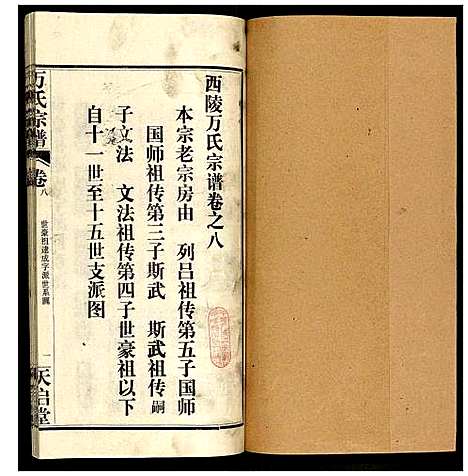 西陵万氏宗谱卷之八
本宗老宗房由 列吕祖传第五子国师
国师祖传第三子斯武 斯武祖传嗣
子文法 文法祖传第四子世豪祖以下
自十一世至十五世支派图
万氏宗谱
卷八
世豪祖逮成字派世系图
一
天启堂